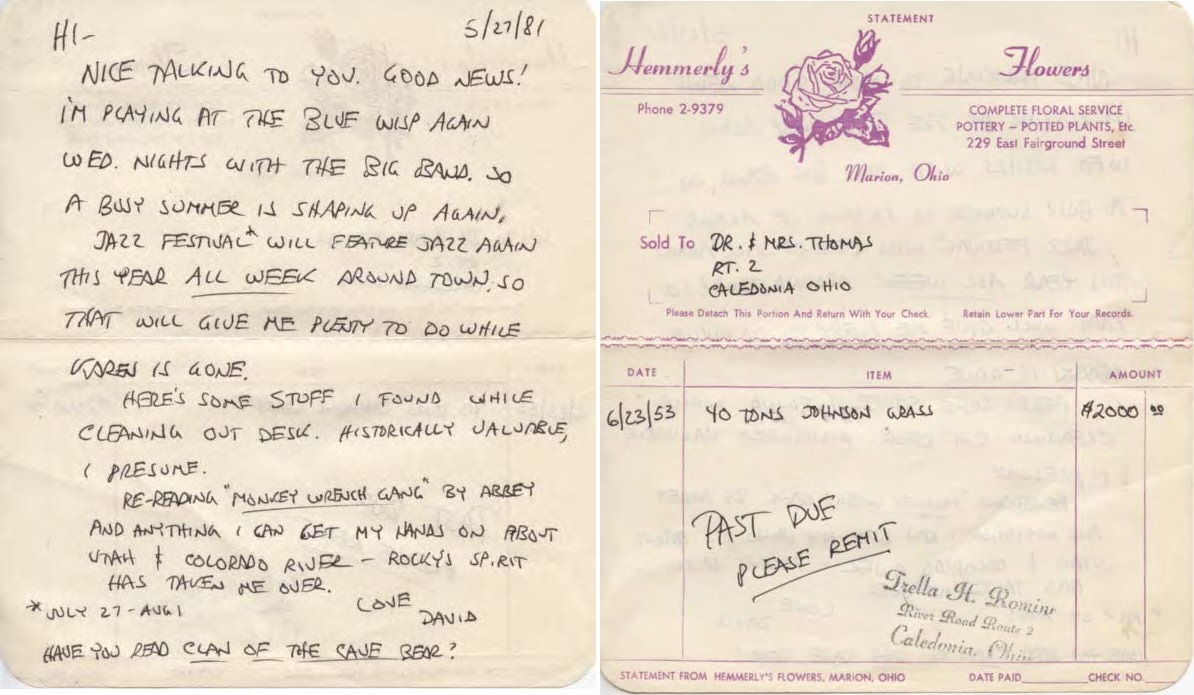 HI- 5/27/81
NICE TALKING TO YOU. GOOD NEWS!
I'M PLAYING AT THE BLUE WISP AGAIN
WED. NIGHTS WITH THE BIG BAND. SO
A BUSY SUMMER IS SHAPING UP AGAIN.
JAZZ FESTIVAL* WILL FEATURE JAZZ AGAIN
THIS YEAR ALL WEEK AROUND TOWN. SO
THAT WILL GIVE ME PLENTY TO DO WHILE
KAREN IS GONE.
HERE'S SOME STUFF I FOUND WHILE
CLEANING OUT DESK. HISTORICALLY VALUABLE,
I PRESUME.
RE-READING "MONKEY WRENCH GANG" BY ABBEY
AND ANYTHING I CAN GET MY HANDS ON ABOUT
UTAH & COLORADO RIVER - ROCKY'S SPIRIT
HAS TAKEN ME OVER.
* JULY 27 - AUG 1 LOVE
DAVID
HAVE YOU READ CLAN OF THE CAVE BEAR?
STATEMENT
Hemmerly's Flowers
Phone 2-9379
COMPLETE FLORAL SERVICE
POTTERY — POTTED PLANTS, Etc.
229 East Fairground Street
Marion, Ohio
Sold To DR. & MRS. THOMAS
RT. 2
CALEDONIA OHIO
Please Detach This Portion And Return With Your Check. Retain Lower Part For Your Records.
DATE ITEM AMOUNT
6/23/53 40 TONS JOHNSON GRASS $2000 00
PAST DUE
PLEASE REMIT
Trella H. Romine
River Road Route 2
Caledonia, Ohio
STATEMENT FROM HEMMERLY'S FLOWERS, MARION, OHIO DATE PAID CHECK NO.